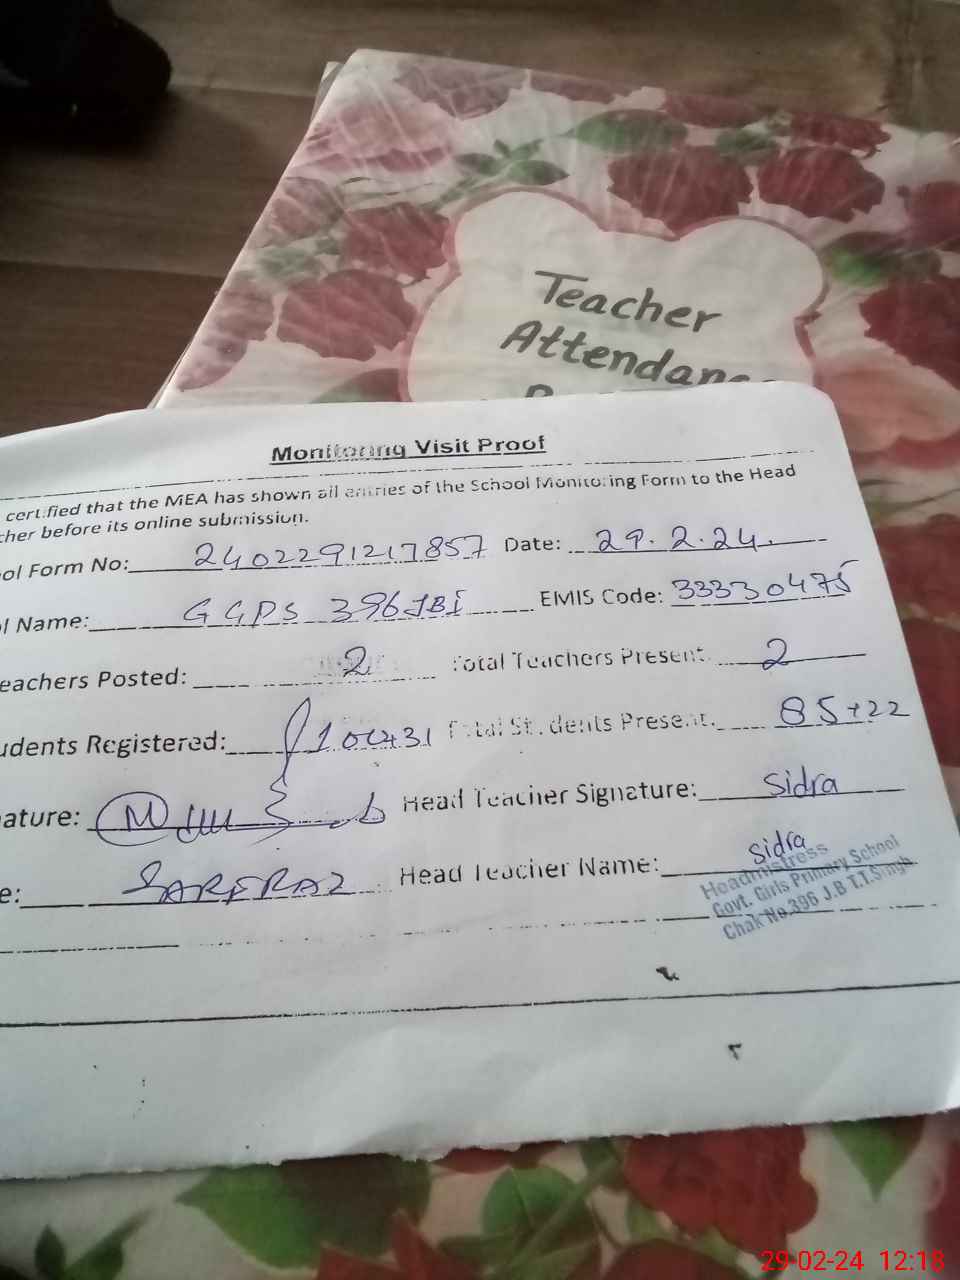 Teacher
Attendanc
Monitoring Visit Proof
certified that the MEA has shown all entries of the School Monitoring Form to the Head
cher before its online submission.
ol Form No: 2402291217857 Date: 29.2.24.
l Name: GGPS 396 JB I EMIS Code: 33330475
eachers Posted: 2 Total Teachers Present: 2
udents Registered: Total Students Present: 85+22
ature: Head Teacher Signature: Sidra
e: Head Teacher Name: Sidra
Headmistress
Govt. Girls Primary School
Chak No.396 J.B T.T.Singh
29-02-24 12:18